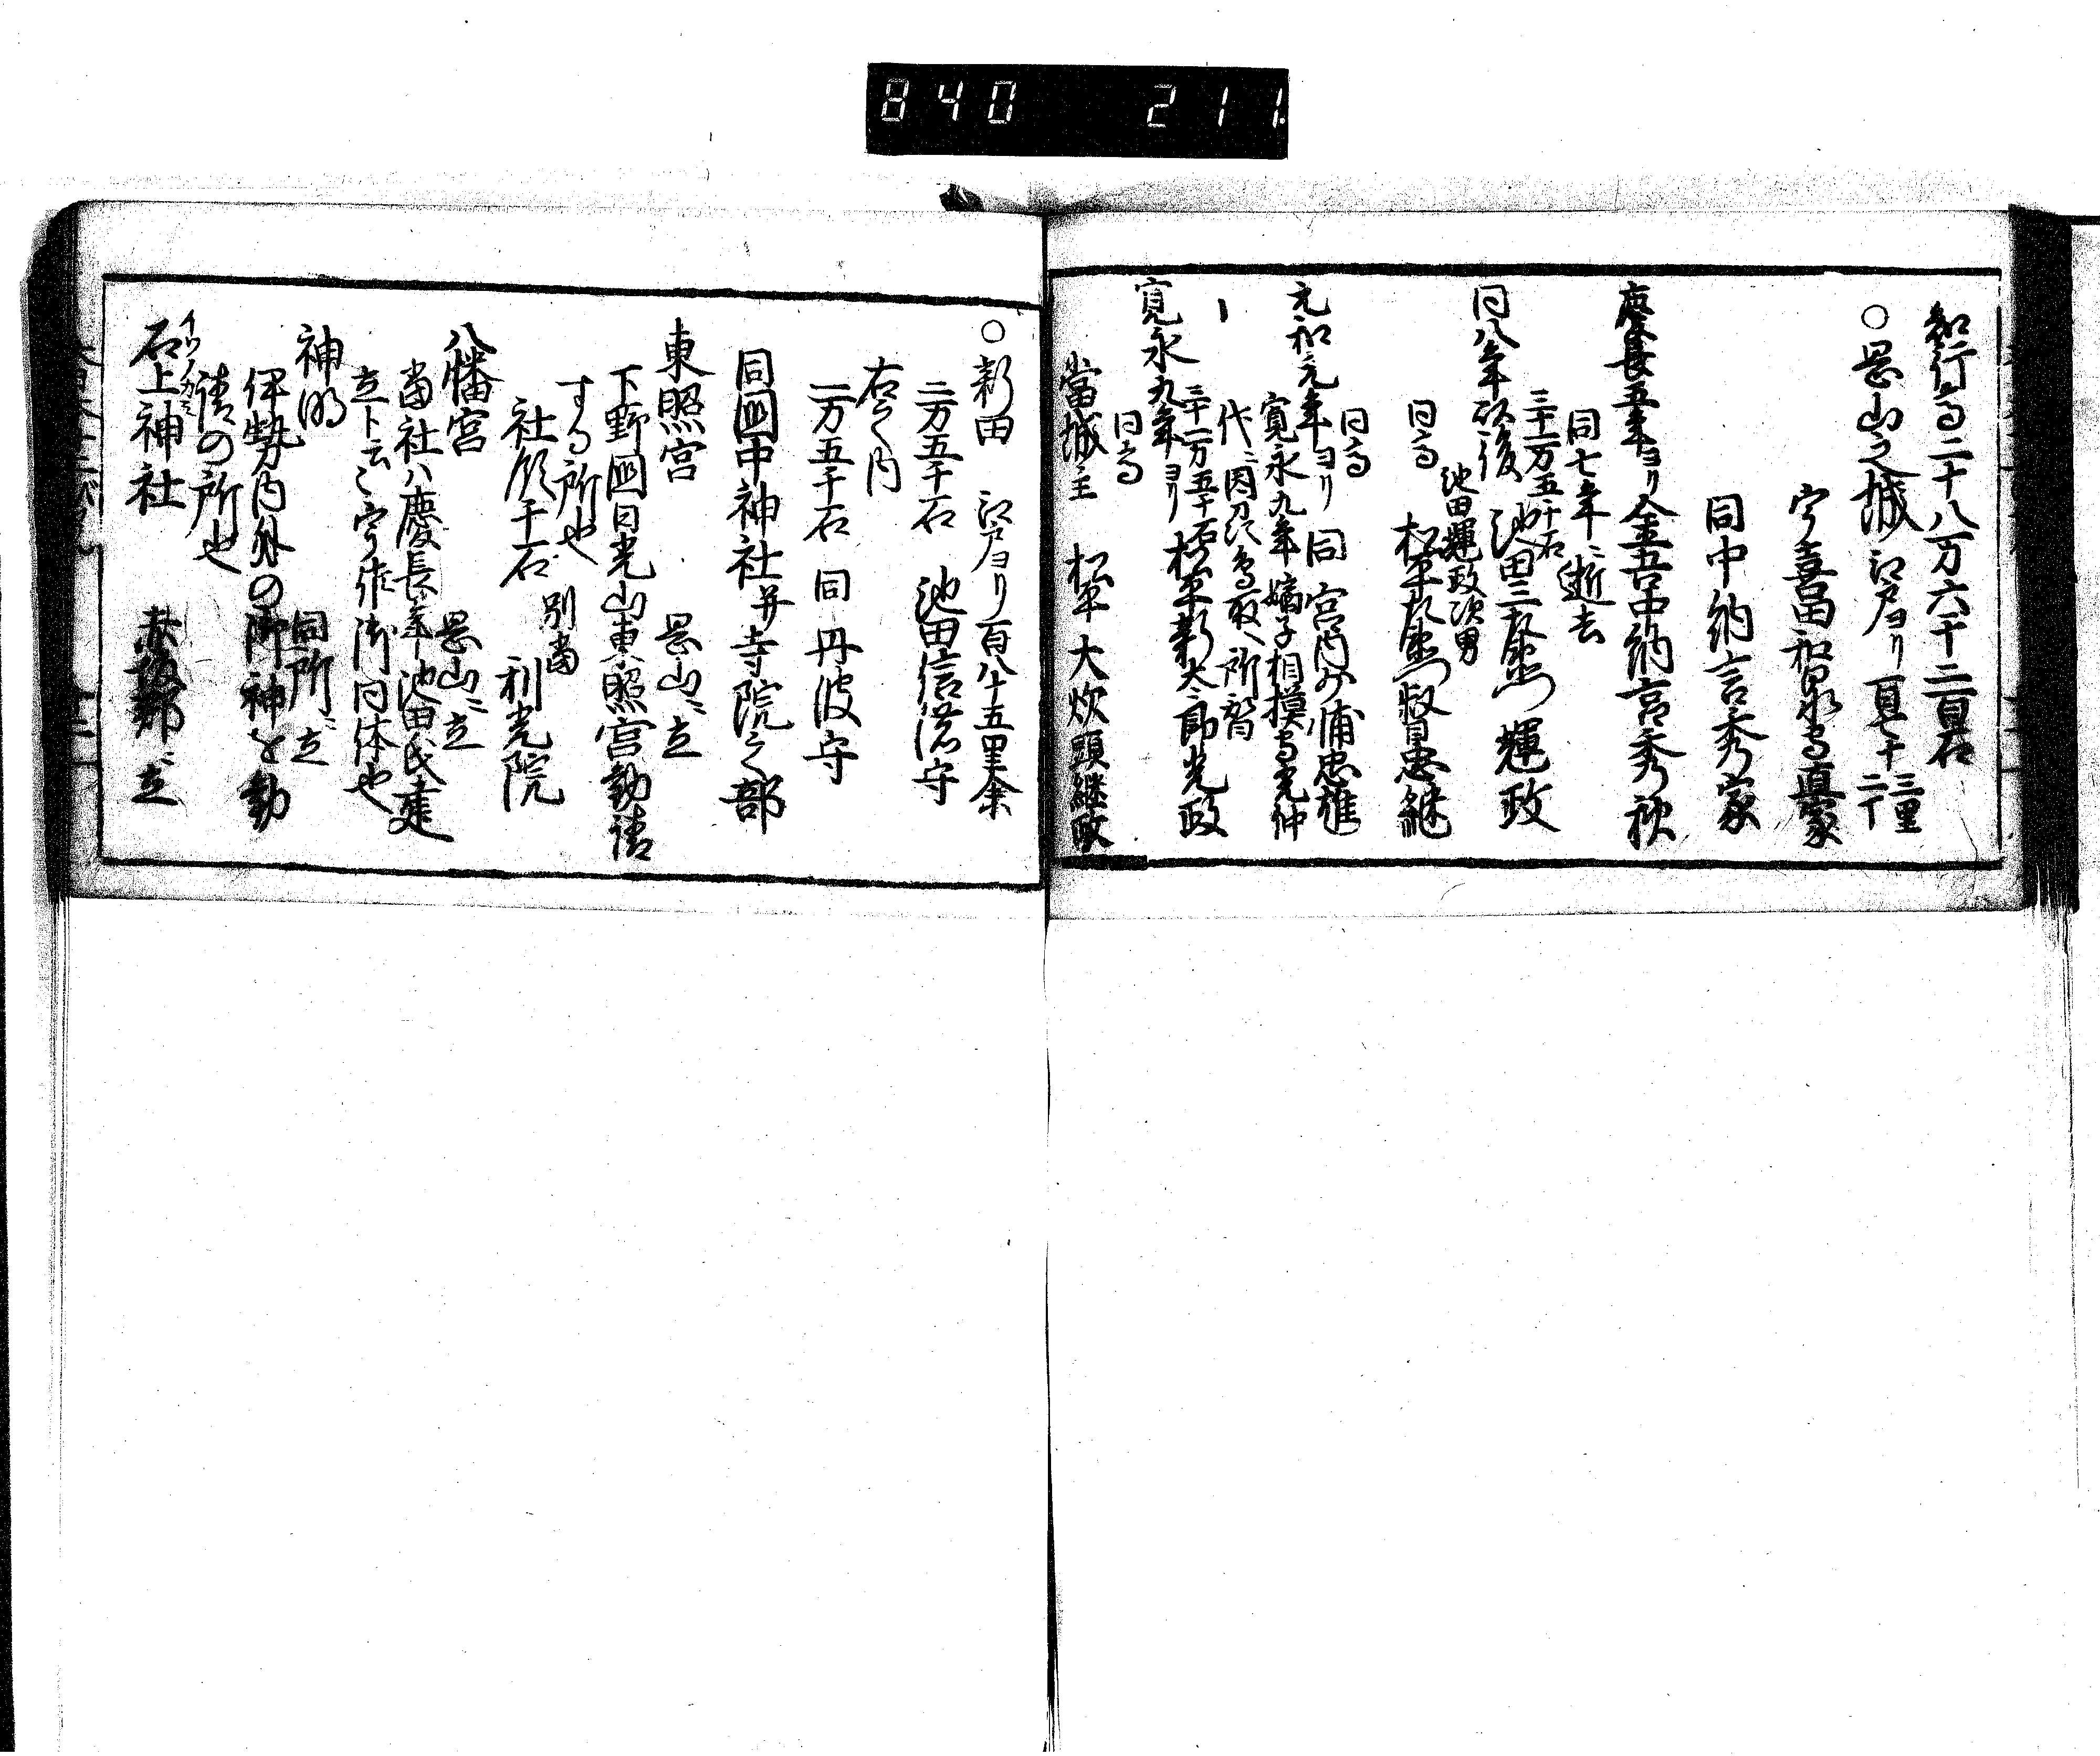 840 211.
知行高二十八万六千二百石
○岡山之城 江戸ヨリ百七十三里二丁
宇喜田和泉守直家
同中納言秀家
慶長五年ヨリ金吾中納言秀秋
同七年ニ逝去
三十一万五千石
同八年以後 池田三左衛門輝政
池田輝政次男
同高 松平左衛門督忠継
同高
元和元年ヨリ同 宮内少輔忠雄
寛永九年嫡子相摸守光仲
代ニ因刕鳥取ヘ所替
三十一万五千石
寛永九年ヨリ松平新太郎光政
同高
當城主 松平大炊頭継政
○新田 江戸ヨリ百八十五里余
二万五千石 池田信濃守
右之内
一万五千石 同丹波守
同國中神社并寺院之部
東照宮 岡山ニ立
下野國日光山東照宮勧請
する所也
社領千石 別當 利光院
八幡宮 岡山ニ立
當社ハ慶長年池田氏建
立ト云々宇佐御同体也
神明 同所ニ立
伊勢内外の御神を勧
請の所也
石上神社 赤坂郡ニ立
イソノカミ